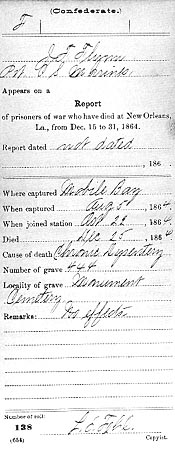 (Confederate.)
F
J. F. Flynn
Pvt. C. S. Marines
Appears on a
Report
of prisoners of war who have died at New Orleans,
La., from Dec. 15 to 31, 1864.
Report dated not dated
186 .
Where captured Mobile Bay
When captured Aug 5, 1864.
When joined station Oct 22, 1864.
Died Dec 25, 1864
Cause of death Chronic Dysentery
Number of grave 444
Locality of grave Monument
Cemetery
Remarks: No effects
Number of roll:
138
(654) Copyist.